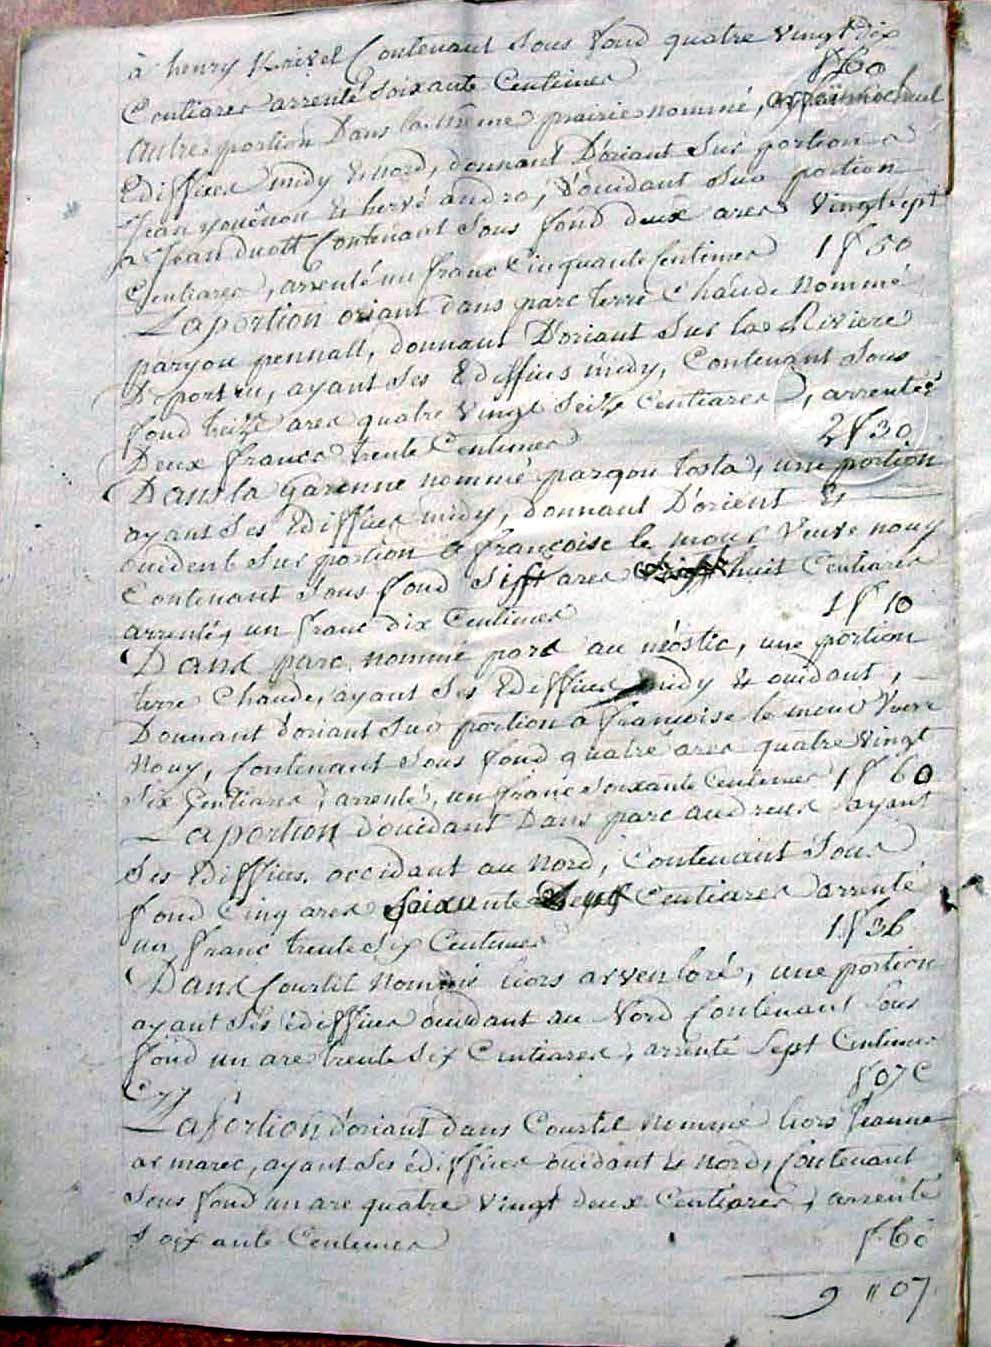 à henry Kaivel Contenant Sous fond quatre vingt dix
Centiares arrenté Soixante Centimes f 60
Autre portion Dans la même prairie nommé,
Ediffices midy & nord, donnant D'oriant Sur portion a
Jean youënou & hervé andro, D'ouidant Sur portion
a Jean duott Contenant Sous fond deux ares Vingt sept
Centiares, arrenté un franc Cinquante Centimes 1 f 50
La portion oriant dans parc terre Chaude Nommé
parjou pennall, donnant D'oriant Sur la Riviere
De port ru, ayant Ses Ediffices midy, Contenant Sous
fond treize ares quatre Vingt Seize Centiares, arrentéé
Deux francs trente Centimes 2 f 30
Dans la Garenne nommé parqou tosta, une portion
ayant Ses Ediffices midy, donnant D'orient &
ouident Sur portion a françoise le mour Veuve nouy
Contenant Sous fond Sept ares huit Centiares
arrentéé un franc dix Centimes 1 f 10
Dans parc nommé parc au méostic, une portion
terre Chaude, ayant Ses Ediffices midy & ouidant,
Donnant d'oriant Sur portion a francoise le mour Veuve
Nouy, Contenant Sous fond quatre ares quatre Vingt
Six Centiares, arrenté, un franc Soixante Centimes 1 f 60
La portion d'ouidant Dans parc audreux ayant
Ses Ediffices occidant au Nord, Contenant Sous
fond Cinq ares Soixante Sept Centiares arrenté
un franc trente Six Centimes 1 f 36
Dans Courtil Nommé liors arvenloré, une portion
ayant Ses édiffices ouidant au Nord Contenant Sous
fond un are trente Six Centiares, arrenté Sept Centimes
Cy f 07 C
La portion d'oriant dans Courtil nommé liors Jeanne
ar marec, ayant Ses édiffices ouidant & Nord, Contenant
Sous fond un are quatre Vingt deux Centiares, arrenté
Soixante Centimes f 60
9 " 07